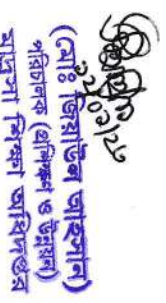 ২২/০১/২৬
(মোঃ জিয়াউল আহসান)
পরিচালক (প্রশিক্ষণ ও উন্নয়ন)
মাদ্রাসা শিক্ষা অধিদপ্তর